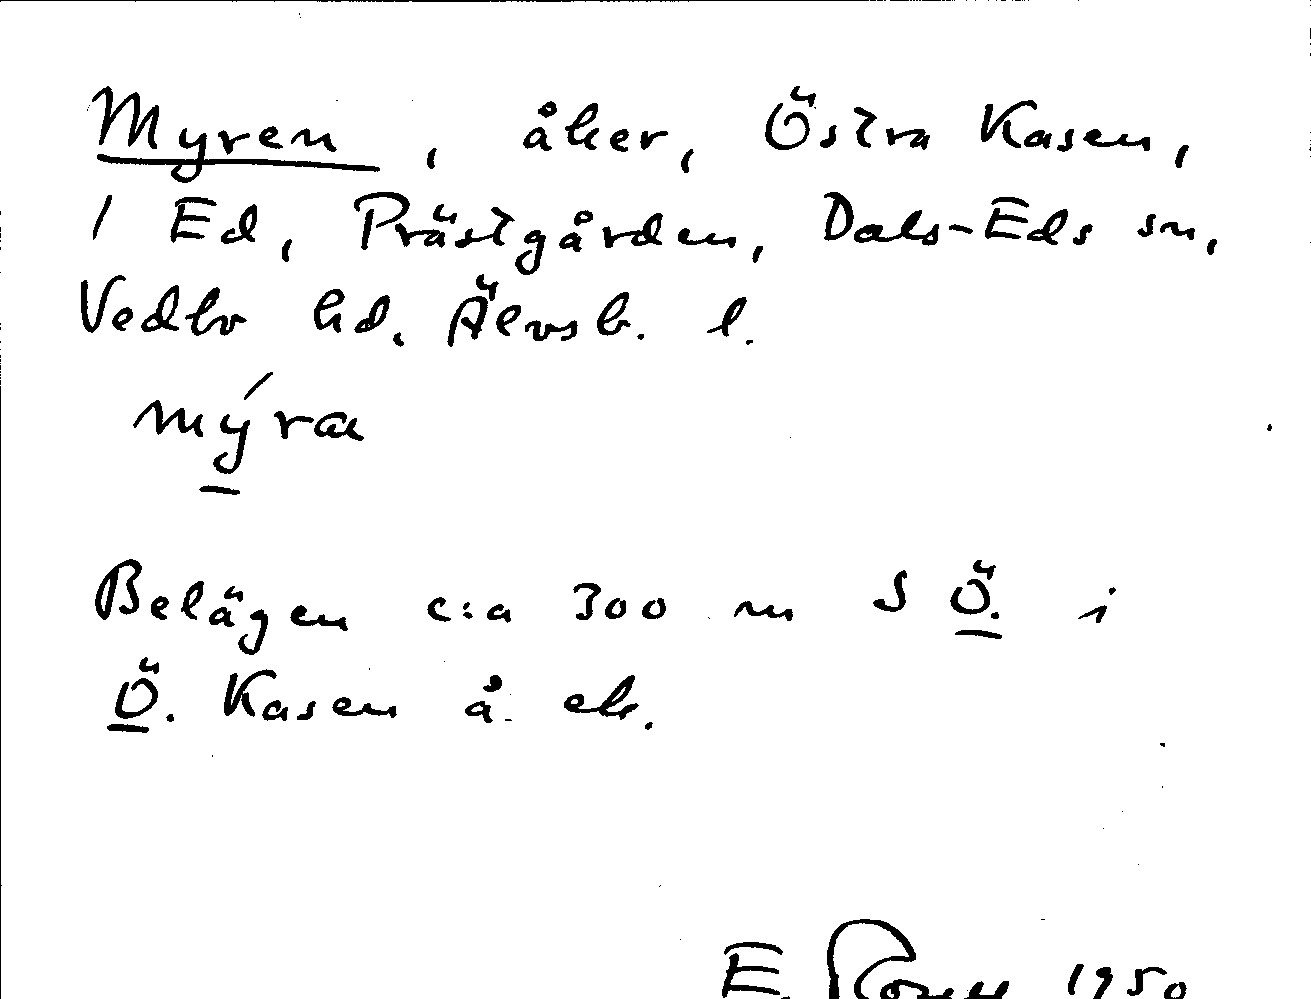 Myren, åker, Östra Kasen,
1 Ed, Prästgården, Dals-Eds sn,
Vedbo hd. Älvsb. l.
mýra
Belägen c:a 300 m S Ö. i
Ö. Kasen å. ek.
E. 1950